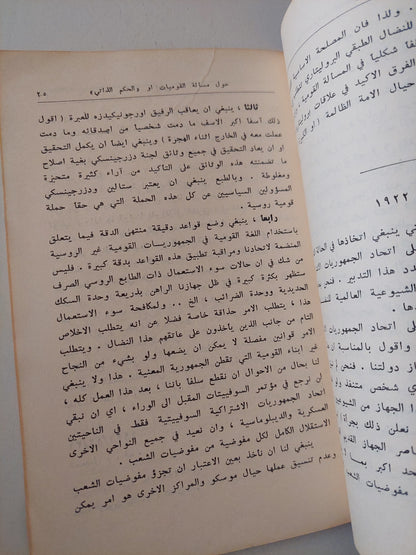 حول مسألة القوميات او «الحكم الذاتي»
٢٥
ثالثا ، ينبغي ان يعاقب الرفيق اورجونيكيدزه للعبرة ( اقول
ذلك آسفا اكبر الاسف ما دمت شخصيا من اصدقائه وما دمت
عملت معه في الخارج اثناء الهجرة ) وينبغي ايضا ان يكمل التحقيق
او ان يعاد التحقيق في جميع وثائق لجنة دزرجينسكي بغية اصلاح
ما تضمنته هذه الوثائق على التأكيد من آراء كثيرة متحيزة
ومغلوطة . وبالطبع ينبغي ان يعتبر ستالين ودزرجينسكي
المسؤولين السياسيين عن كل هذه الحملة التي هي حقا حملة
قومية روسية .
رابعا ، ينبغي وضع قواعد دقيقة منتهى الدقة فيما يتعلق
باستخدام اللغة القومية في الجمهوريات القومية غير الروسية
المنضمة لاتحادنا ومراقبة تطبيق هذه القواعد بدقة كبيرة . فليس
من شك في ان حالات سوء الاستعمال ذات الطابع الروسي الصرف
ستظهر بكثرة كبيرة في ظل جهازنا الراهن بذريعة وحدة السكك
الحديدية ووحدة الضرائب ، الخ .. ولمكافحة سوء الاستعمال
هذا ، يتطلب الامر حذاقة خاصة فضلا عن انه يتطلب الاخلاص
التام من جانب الذين ياخذون على عاتقهم هذا النضال . ويتطلب
الامر قوانين مفصلة لا يمكن ان يضعها ولو بشيء من النجاح
غير ابناء القومية التي تقطن الجمهورية المعنية . هذا ولا ينبغي
لنا بحال من الاحوال ان نقطع سلفا باننا ، بعد هذا العمل كله ،
لن نرجع في مؤتمر السوفييتات المقبل الى الوراء ، اي ان نبقي
اتحاد الجمهوريات الاشتراكية السوفييتية فقط في الناحيتين
العسكرية والديبلوماسية ، وان نعيد في جميع النواحي الاخرى
الاستقلال الكامل لكل مفوضية من مفوضيات الشعب .
ينبغي لنا ان ناخذ بعين الاعتبار ان تجزؤ مفوضيات الشعب
وعدم تنسيق عملها حيال موسكو والمراكز الاخرى هو امر يمكن
. ولذا فان المصلحة الاساسية
للنضال الطبقي البروليتاري
شكليا في المسألة القومية
الفرق الاكيد في علاقات
حيال الامة الظالمة
١٩٢٢
ي ينبغي اتخاذها في الحالة
اتحاد الجمهوريات
هذا التدبير .
الشيوعية العالمية
على اتحاد الجمهوريات
واقول بالمناسبة
دولتنا . فنحن
شخص متنفذ
الجهاز من
نعلن ذلك بجرأة
عناصر الجهاز القديم
اكبر بما
مفوضيات الشعب